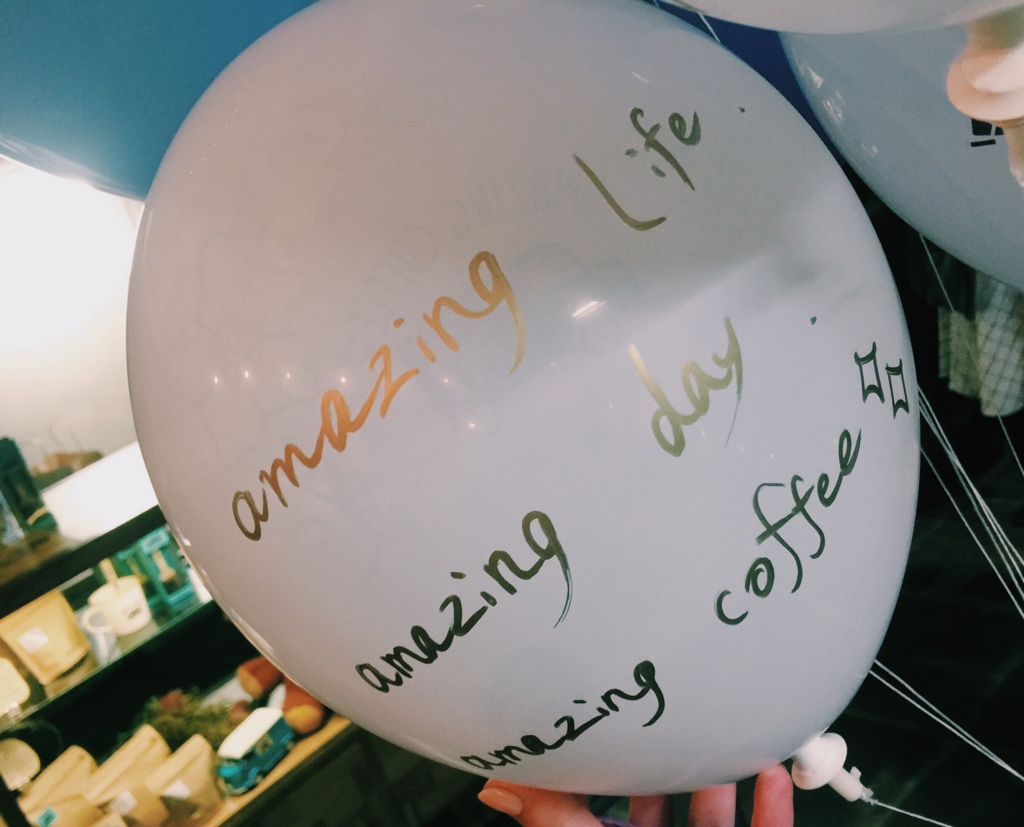 amazing Life.
amazing day.
amazing coffee